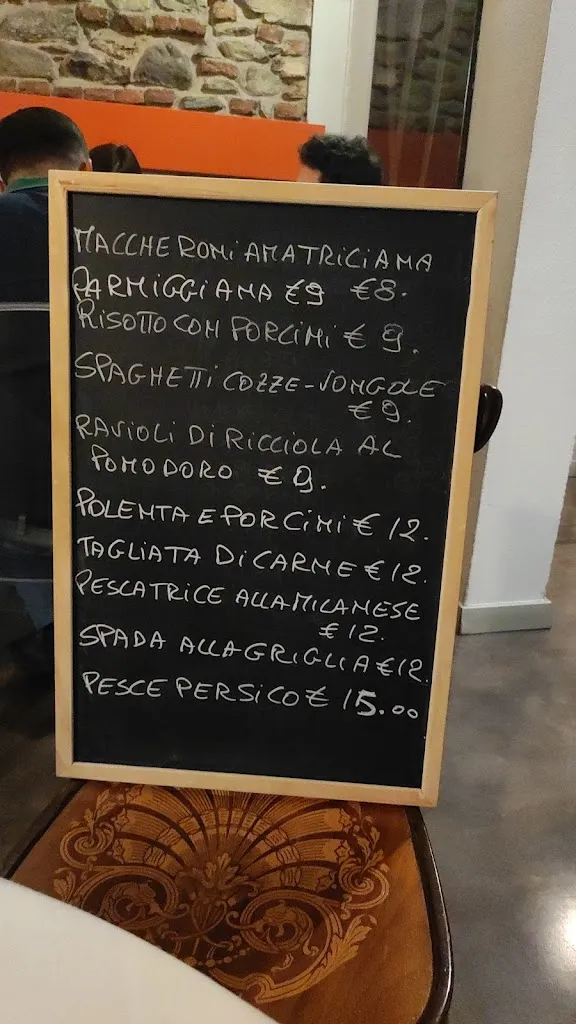 MACCHERONI AMATRICIANA
PARMIGGIANA €9 €8.
RISOTTO CON PORCINI € 9.
SPAGHETTI COZZE-VONGOLE
€9.
RAVIOLI DI RICCIOLA AL
POMODORO €9.
POLENTA E PORCINI € 12.
TAGLIATA DI CARNE € 12.
PESCATRICE ALLA MILANESE
€ 12.
SPADA ALLA GRIGLIA €12.
PESCE PERSICO € 15.00